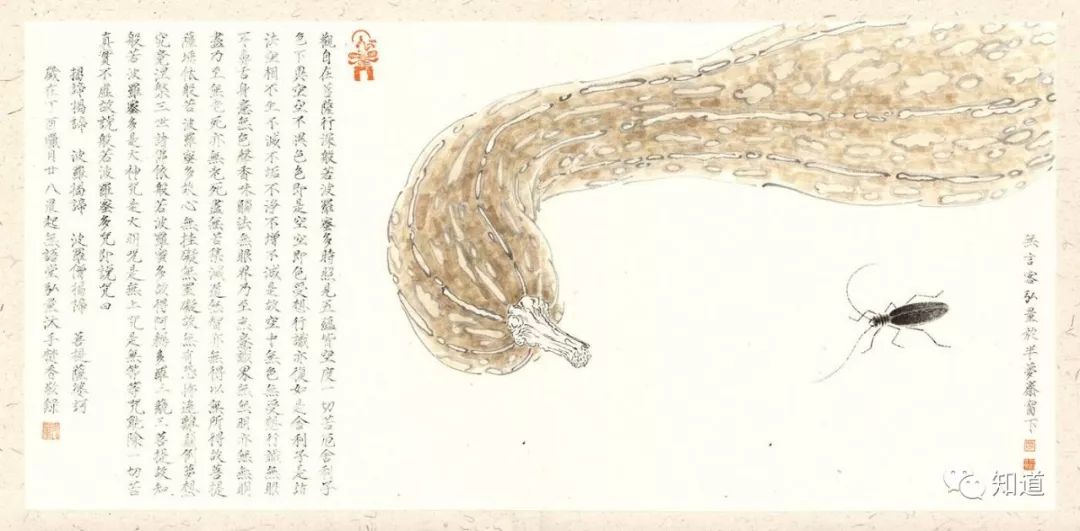 無言客弘量於半夢齋畱下
觀自在菩薩行深般若波羅蜜多時照見五蘊皆空度一切苦厄舍利子
色不異空空不異色色即是空空即色受想行識亦復如是舍利子是諸
法空相不生不滅不垢不淨不增不減是故空中無色無受想行識無眼
耳鼻舌身意無色聲香味觸法無眼界乃至無意識界無無明亦無無明
盡乃至無老死亦無老死盡無苦集滅道無智亦無得以無所得故菩提
薩埵依般若波羅蜜多故心無挂礙無罣礙故無有恐怖遠離顛倒夢想
究竟涅槃三世諸佛依般若波羅蜜多故得阿耨多羅三藐三菩提故知
般若波羅蜜多是大神咒是大明咒是無上咒是無等等咒能除一切苦
真實不虛故說般若波羅蜜多咒即說咒曰
揭諦揭諦 波羅揭諦 波羅僧揭諦 菩提薩婆訶
歲在丁酉臘月廿八晨起無語堂弘量沃手焚香敬錄
知道